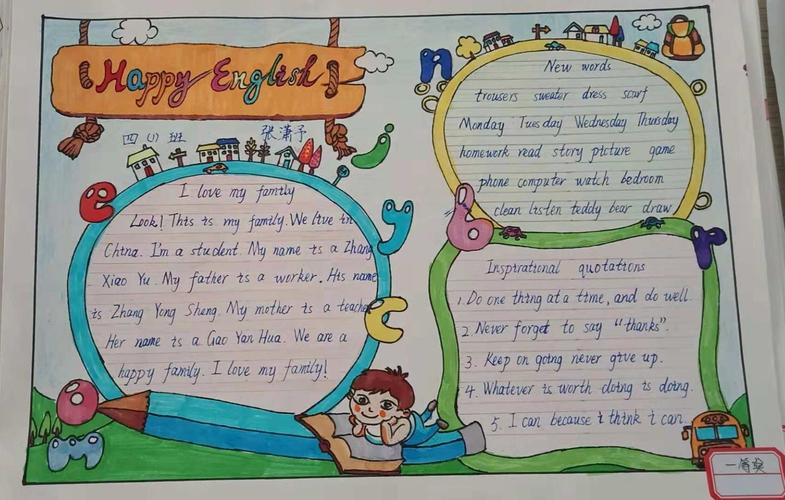 Happy English
四(1)班 张潇予
I love my family
Look! This is my family. We live in
China. I'm a student. My name is a Zhang
Xiao Yu. My father is a worker. His name
is Zhang Yong Sheng. My mother is a teacher
Her name is a Gao Yan Hua. We are a
happy family. I love my family!
New words
trousers sweater dress scarf
Monday Tuesday Wednesday Thursday
homework read story picture game
phone computer watch bedroom
clean listen teddy bear draw
Inspirational quotations
1. Do one thing at a time, and do well.
2. Never forget to say "thanks".
3. Keep on going never give up.
4. Whatever is worth doing is doing.
5. I can because i think i can.
n
e
j
y
c
b
r
a
m
一等奖